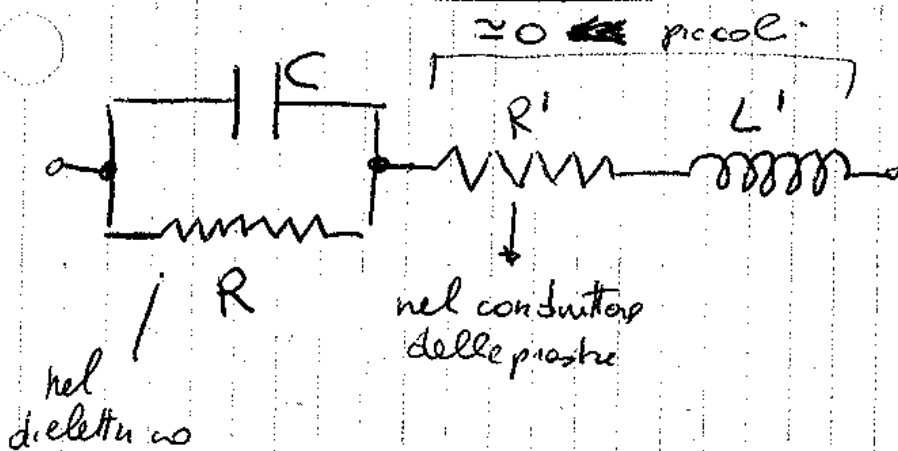 ≃0 piccoli
C
R' L'
R
nel conduttore
delle piastre
nel
dielettrico